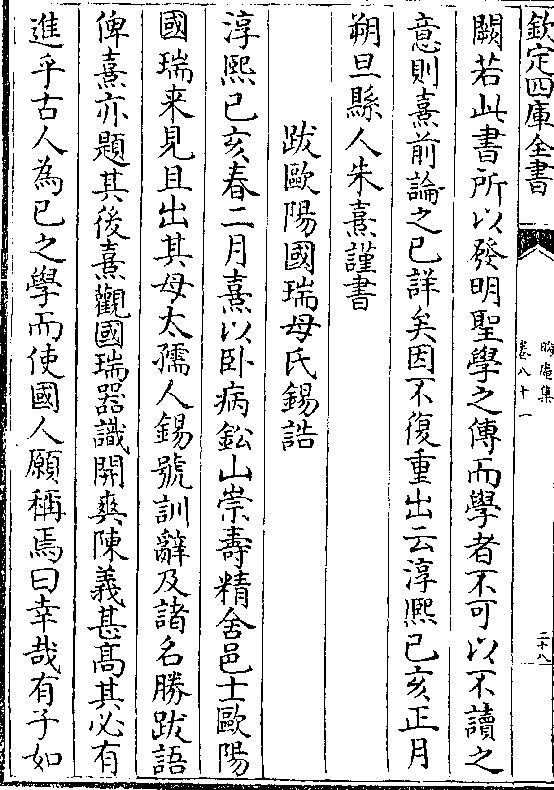 欽定四庫全書
晦庵集
卷八十一
二十八
闕若此書所以發明聖學之傳而學者不可以不讀之
意則熹前論之已詳矣因不復重出云淳熙己亥正月
朔旦縣人朱熹謹書
跋歐陽國瑞母氏錫誥
淳熙己亥春二月熹以卧病鉛山崇壽精舍邑士歐陽
國瑞来見且出其母太孺人錫號訓辭及諸名勝跋語
俾熹亦題其後熹觀國瑞器識開爽陳義甚髙其必有
進乎古人為己之學而使國人願稱焉曰幸哉有子如